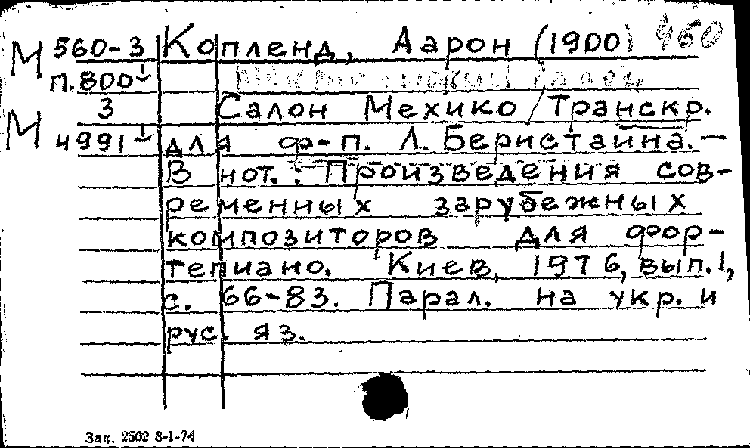 М 560-3 Копленд, Аарон (1900) 460
п.800
3 Салон Мехико/Транскр.
М 4991 для ф-п. Л. Бернстайна. —
В нот.: Произведения сов-
ременных зарубежных
композиторов для фор-
тепиано. Киев, 1976, вып.1,
с. 66-83. Парал. на укр. и
рус. яз.
Зак. 2502 8-1-74